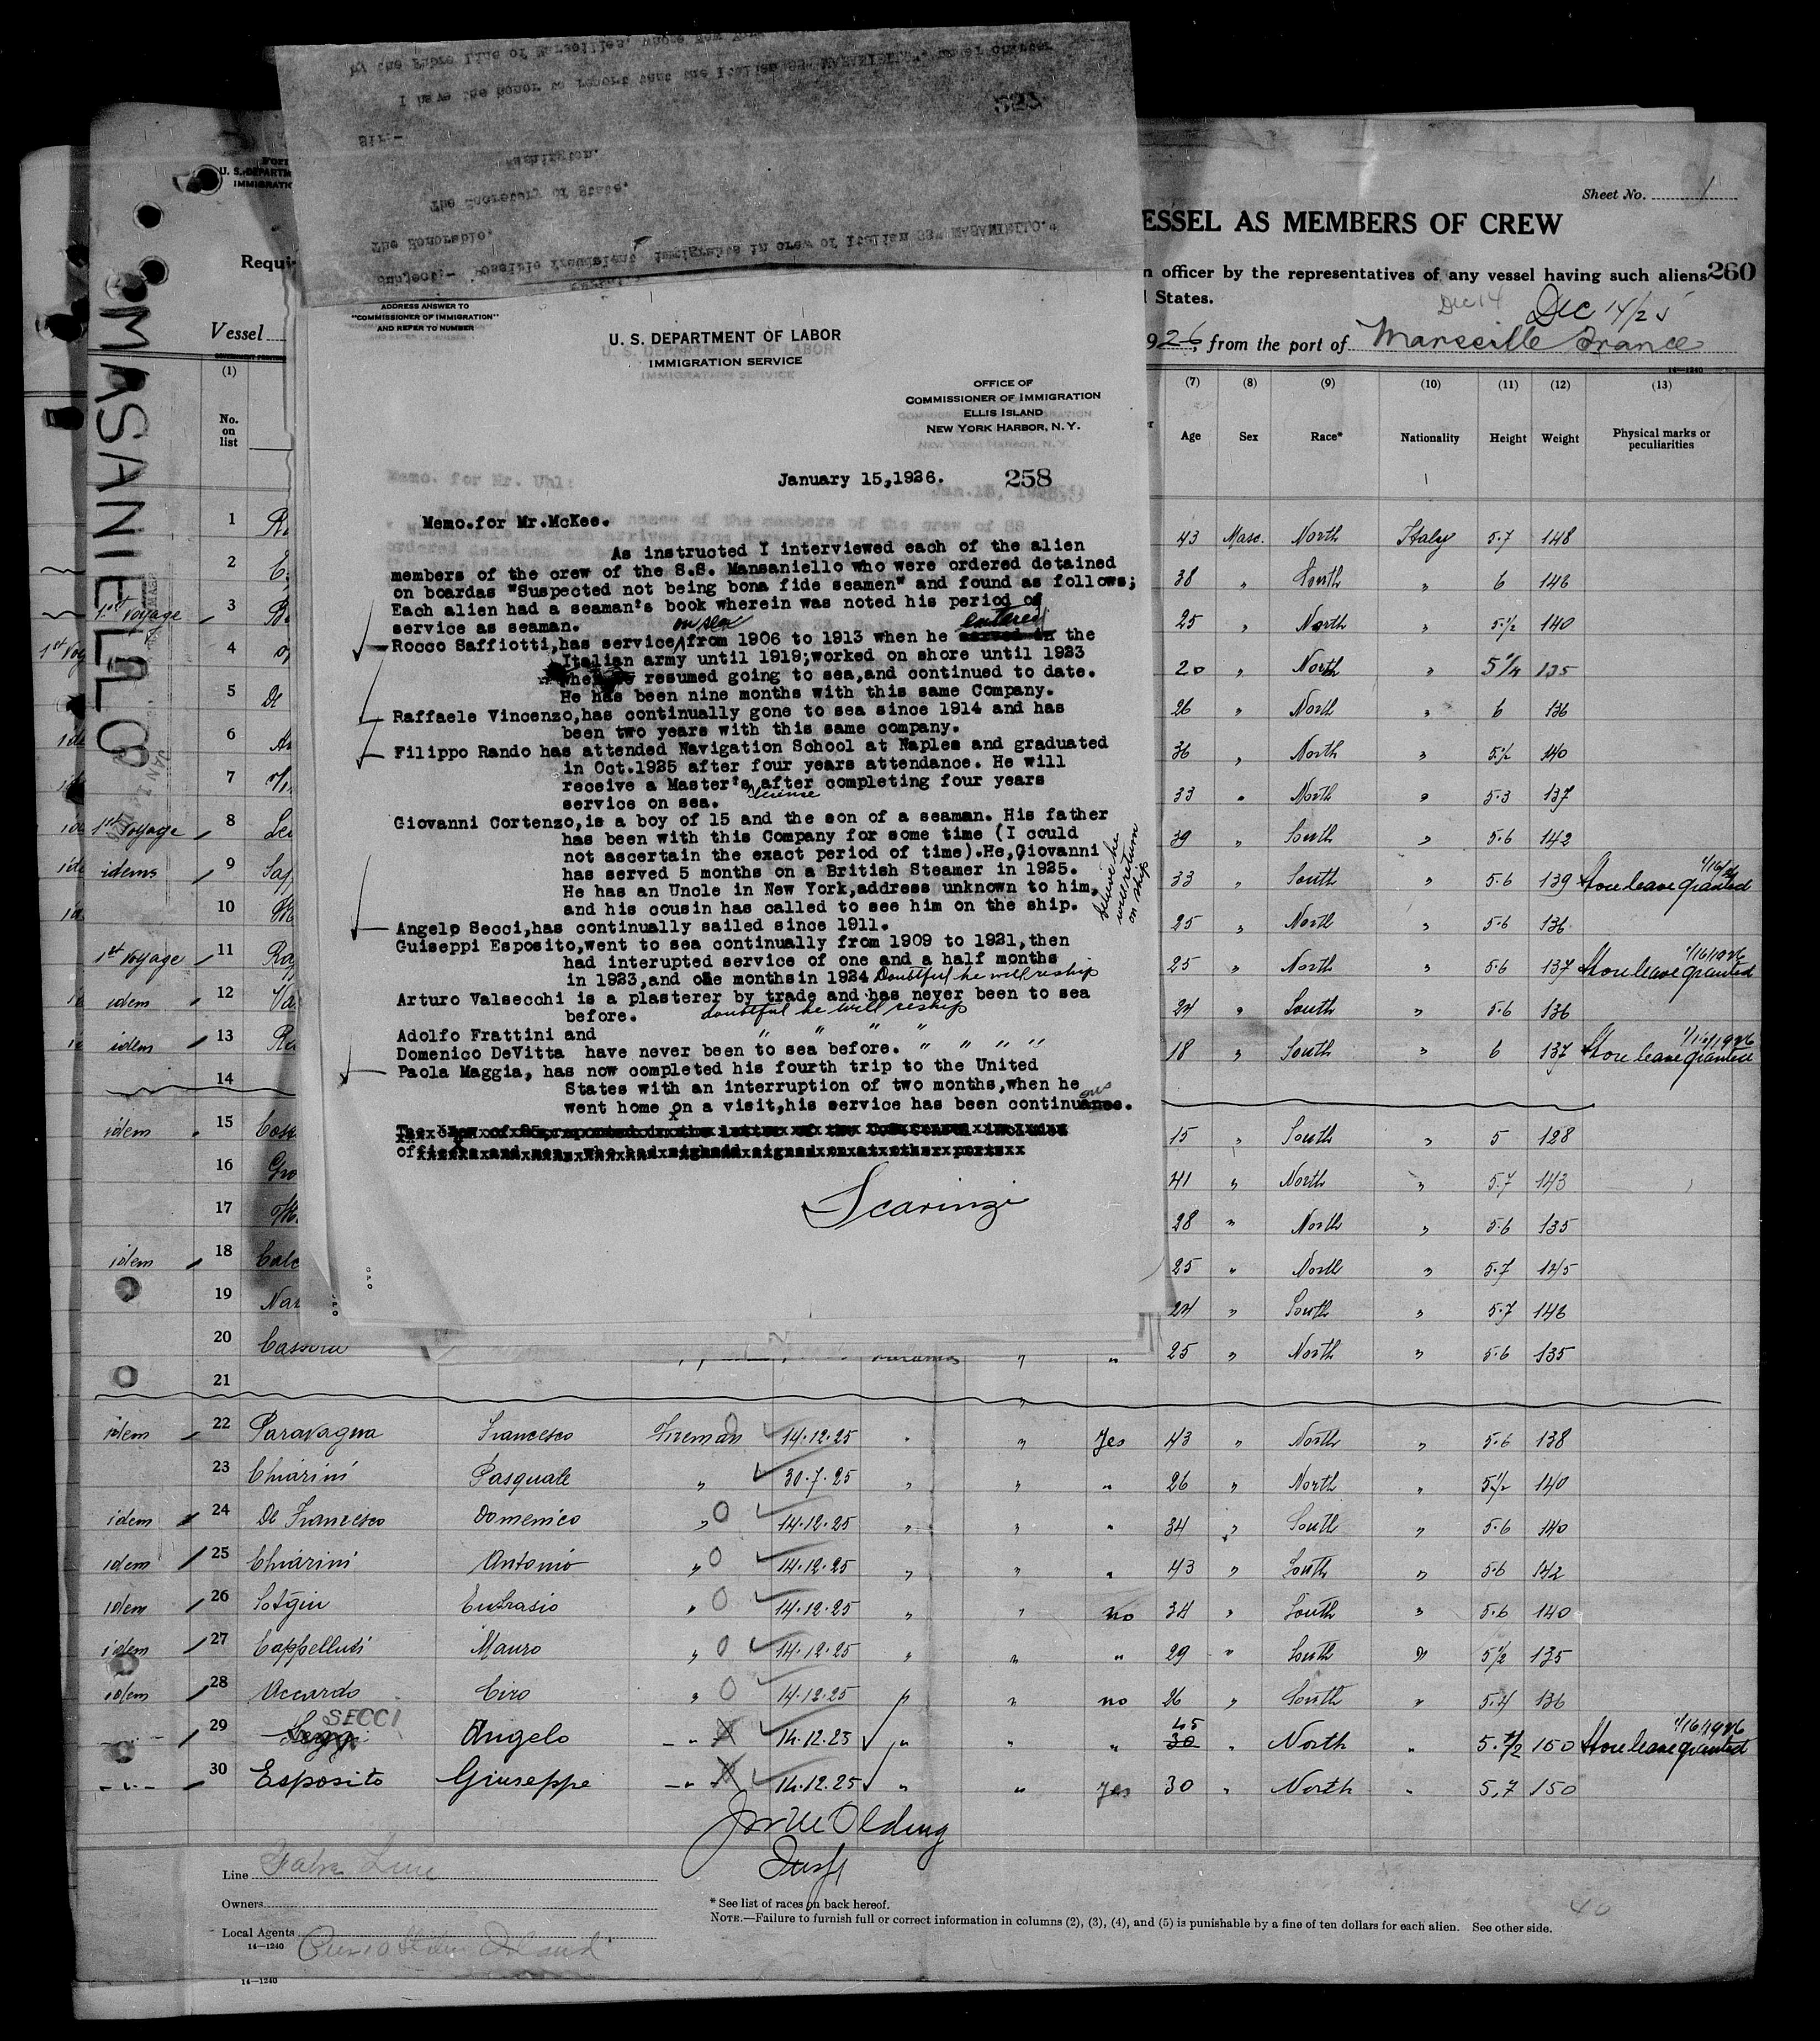 Sheet No. 1
ESSEL AS MEMBERS OF CREW
n officer by the representatives of any vessel having such aliens 260
States.
Dec 14
Dec 14/25
926, from the port of Marseille France
14—1240
U. S. DEPARTM
IMMIGRATIO
Requir
Vessel
MASANIELLO
by the Fabre Line of Marseilles, whose New York
I have the honor to report that the Italian SS" MASANIELLO", under charter
527
Sir:-
Washington.
The Secretary of State,
The Honorable,
Subject:- Possible fraudulent immigrants in crew of Italian SS" MASANIELLO."
ADDRESS ANSWER TO
"COMMISSIONER OF IMMIGRATION"
AND REFER TO NUMBER
U. S. DEPARTMENT OF LABOR
IMMIGRATION SERVICE
OFFICE OF
COMMISSIONER OF IMMIGRATION
ELLIS ISLAND
NEW YORK HARBOR, N.Y.
January 15,1926. 258
Memo. for Mr. Uhl:
Memo.for Mr.McKee.
As instructed I interviewed each of the alien
members of the crew of the S.S. Mansaniello who were ordered detained
on boardas "Suspected not being bona fide seamen" and found as follows;
Each alien had a seaman's book wherein was noted his period of
service as seaman.
on sea entered
Rocco Saffiotti,has service from 1906 to 1913 when he served in the
Italian army until 1919;worked on shore until 1923
when he resumed going to sea,and continued to date.
He has been nine months with this same Company.
Raffaele Vincenzo,has continually gone to sea since 1914 and has
been two years with this same company.
Filippo Rando has attended Navigation School at Naples and graduated
in Oct.1925 after four years attendance. He will
receive a Master's after completing four years
license
service on sea.
Giovanni Cortenzo,is a boy of 15 and the son of a seaman. His father
has been with this Company for some time (I could
not ascertain the exact period of time).He,Giovanni
has served 5 months on a British Steamer in 1925.
He has an Uncle in New York,address unknown to him.
and his cousin has called to see him on the ship.
believe he
will return
on ship
Angelo Secci,has continually sailed since 1911.
Guiseppi Esposito,went to sea continually from 1909 to 1921,then
had interupted service of one and a half months
in 1923,and one monthsin 1924 Doubtful he will reship
Arturo Valsecchi is a plasterer by trade and has never been to sea
before. doubtful he will reship
Adolfo Frattini and " " " "
Domenico DeVitta have never been to sea before. " " " "
Paola Maggia, has now completed his fourth trip to the United
States with an interruption of two months,when he
went home on a visit,his service has been continuous.
Scarinzi
(1) (7) (8) (9) (10) (11) (12) (13)
No. on list Age Sex Race* Nationality Height Weight Physical marks or peculiarities
1 43 Masc. North Italy 5.7 148
2 38 " South " 6 146
1st voyage 3 25 " North " 5 1/2 140
4 20 " North " 5 1/4 135
5 De 26 " North " 6 136
6 36 " North " 5 1/2 140
7 33 " North " 5.3 137
1st voyage 8 39 " South " 5.6 142
idems 9 33 " South " 5.6 139 Shore leave granted 1/16/26
10 25 " North " 5.6 136
1st voyage 11 25 " North " 5.6 137 Shore leave granted 1/16/1926
idem 12 24 " South " 5.6 136
idem 13 18 " South " 6 137 Shore leave granted 1/16/1926
14
idem 15 15 " South " 5 128
16 41 " North " 5.7 143
17 28 " North " 5.6 135
idem 18 25 " North " 5.7 145
19 24 " South " 5.7 146
20 25 " North " 5.6 135
21
idem 22 Paravagna Francesco Fireman 14.12.25 " " Yes 43 " North " 5.6 138
23 Chiarini Pasquale " 30.7.25 " " " 26 " North " 5 1/2 140
idem 24 De Francesco Domenico " 0 14.12.25 " " " 34 " South " 5.6 140
idem 25 Chiarini Antonio " 0 14.12.25 " " " 43 " South " 5.6 142
idem 26 Sotgiu Eufrasio " 0 14.12.25 " " no 34 " South " 5.6 140
idem 27 Cappelluti Mauro " 0 14.12.25 " " " 29 " South " 5 1/2 135
idem 28 Accardo Ciro " 0 14.12.25 " " no 26 " South " 5.4 136
29 SECCI Angelo " 14.12.25 " " " 45 30 " North " 5.7/2 150 Shore leave granted 1/16/1926
30 Esposito Giuseppe " 14.12.25 " " Yes 30 " North " 5.7 150
Line Fabre Line
Owners
Local Agents
14—1240
* See list of races on back hereof.
NOTE.—Failure to furnish full or correct information in columns (2), (3), (4), and (5) is punishable by a fine of ten dollars for each alien. See other side.
40
14—1240